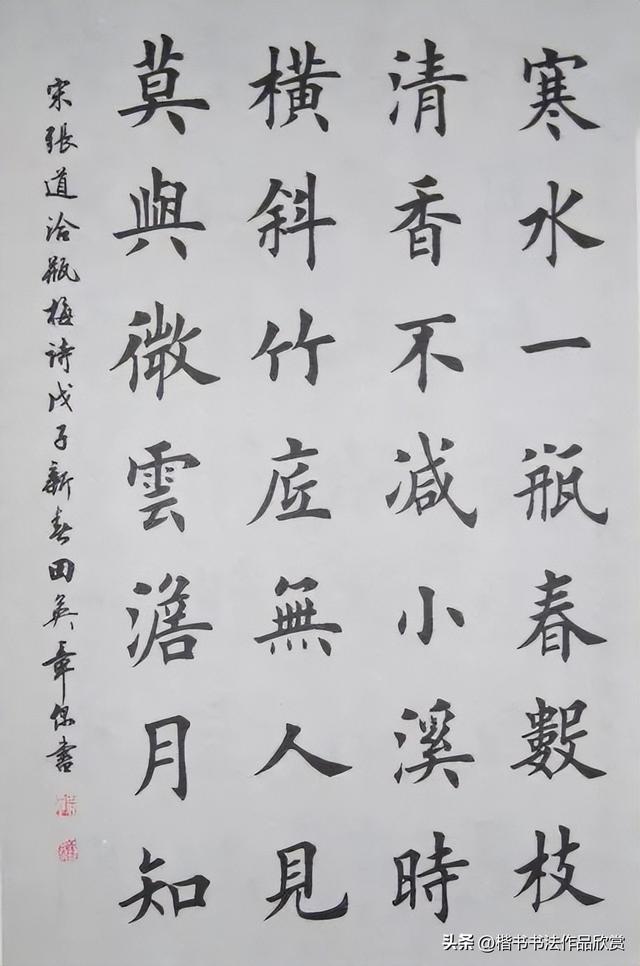 寒水一瓶春數枝
清香不減小溪時
橫斜竹底無人見
莫與微雲澹月知
宋張道洽瓶梅詩戊子新春田英章保書
头条@楷书书法作品欣赏